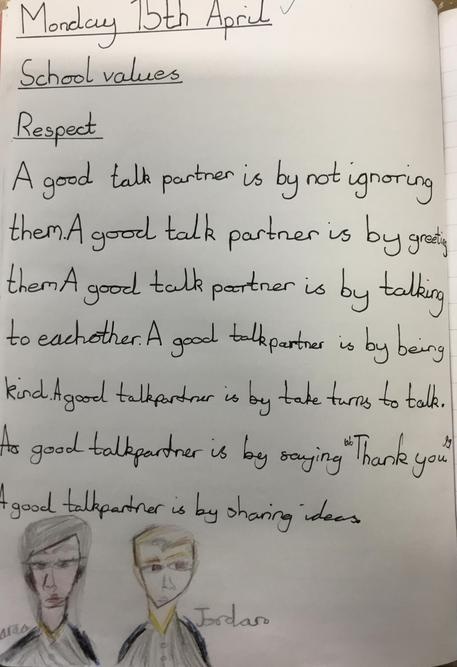 Monday 15th April
School values
Respect
A good talk partner is by not ignoring
them.A good talk partner is by greetig
them A good talk partner is by talking
to eachother. A good talkpartner is by being
kind. A good talkpartner is by take turns to talk.
As good talkpardner is by saying "Thank you"
A good talkpartner is by sharing ideas
Jordan